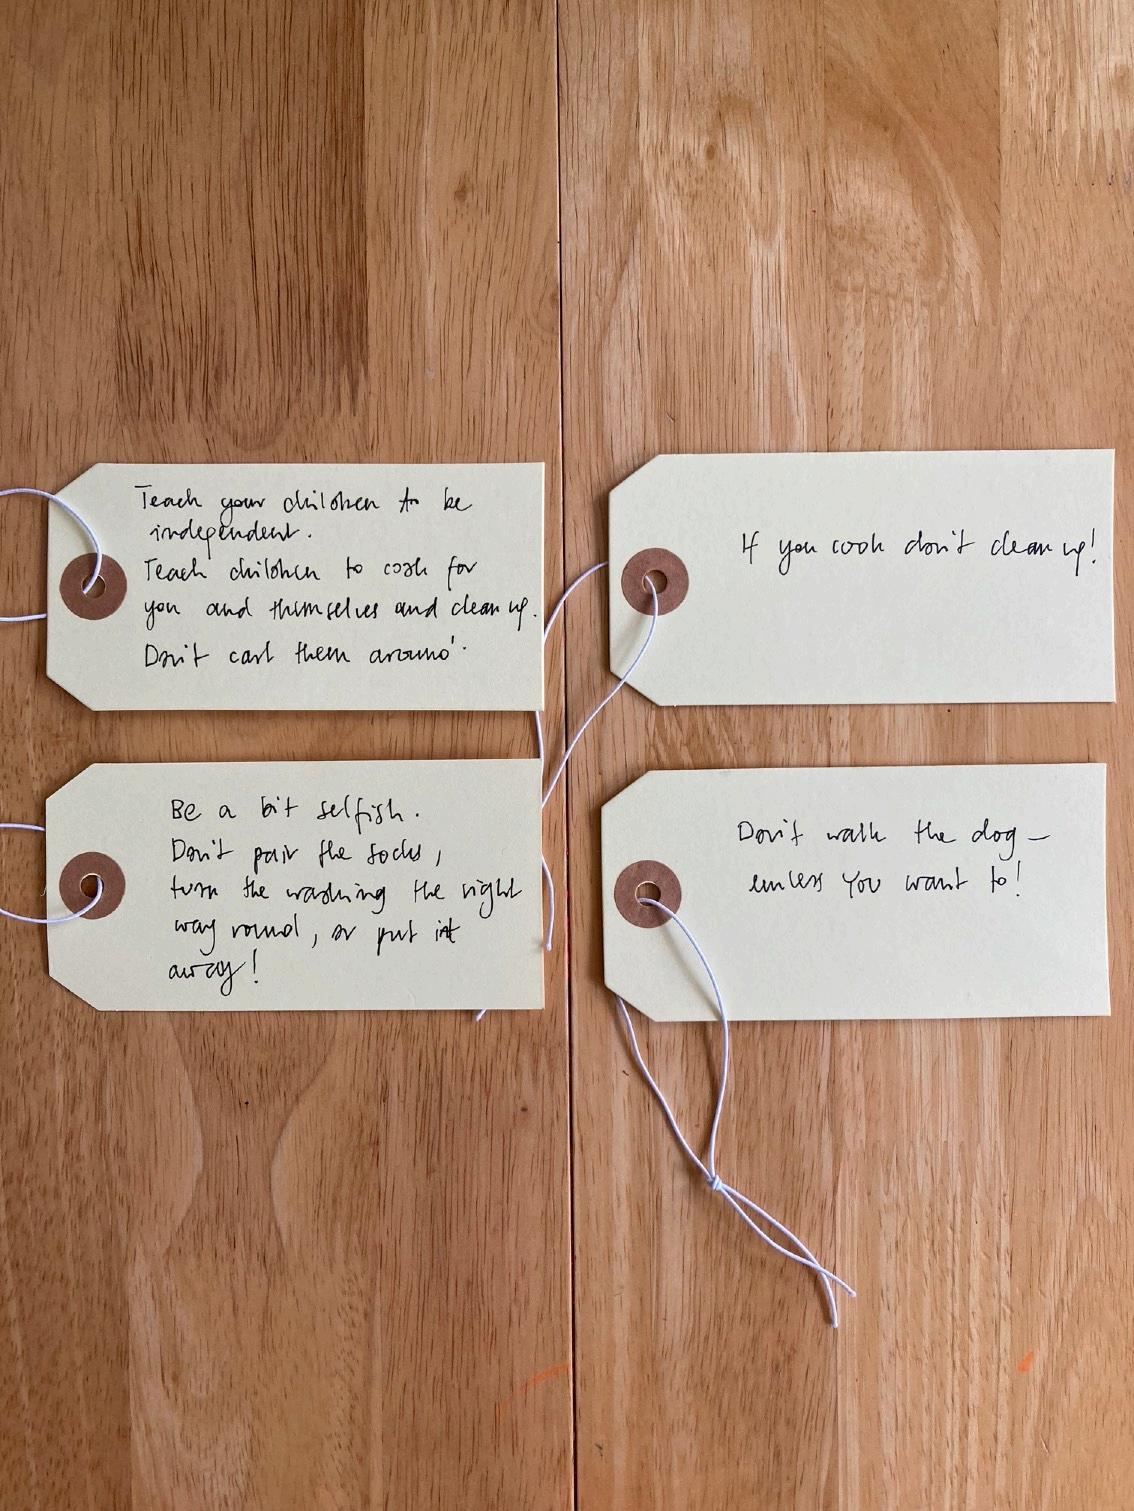 Teach your children to be
independent.
Teach children to cook for
you and themselves and clean up.
Don't cart them around.
If you cook don't clean up!
Be a bit selfish.
Don't pair the socks,
turn the washing the right
way round, or put it
away!
Don't walk the dog –
unless you want to!